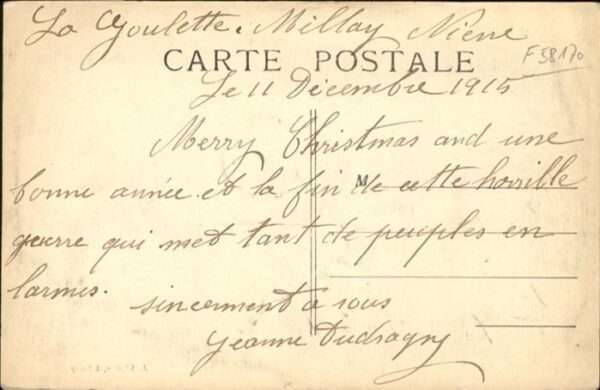 La Goulette. Millay Nièvre
F58170
CARTE POSTALE
Le 11 Décembre 1915
Merry Christmas and une
bonne année et la fin de cette horrible
M
guerre qui met tant de peuples en
larmes.
sincerment à vous
Jeanne